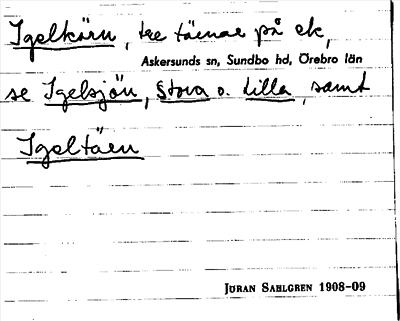 Igelkärn, tre tärnar på ek,
Askersunds sn, Sundbo hd, Örebro län
se Igelsjön, Stora o. Lilla, samt
Igeltäen
JURAN SAHLGREN 1908-09